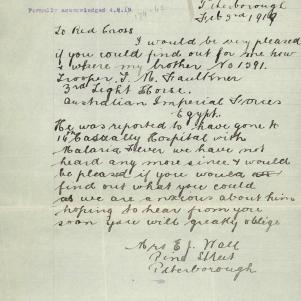 Formally acknowledged 4.2.19
Peterborough
Feb 3rd 1919
To Red Cross
I would be very pleased
if you could find out for me how
& where my brother No 1391.
Trooper, T. M. Faulkner
3rd Light Horse.
Australian Imperial Forces
Egypt.
He was reported to have gone to
14th Casualty Hospital with
Malaria Fever we have not
heard any more since & would
be pleased if you would
find out what you could
as we are anxious about him
hoping to hear from you
soon you will greatly oblige
Mrs E. J. Wall
Peterborough